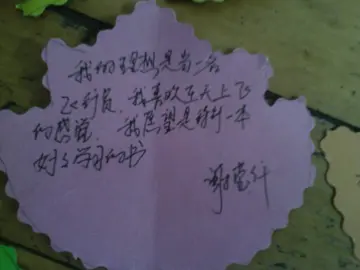 我的理想是当一名
飞行员，我喜欢在天上飞
的感觉，我愿望是得到一本
好好学习的书
谢莹